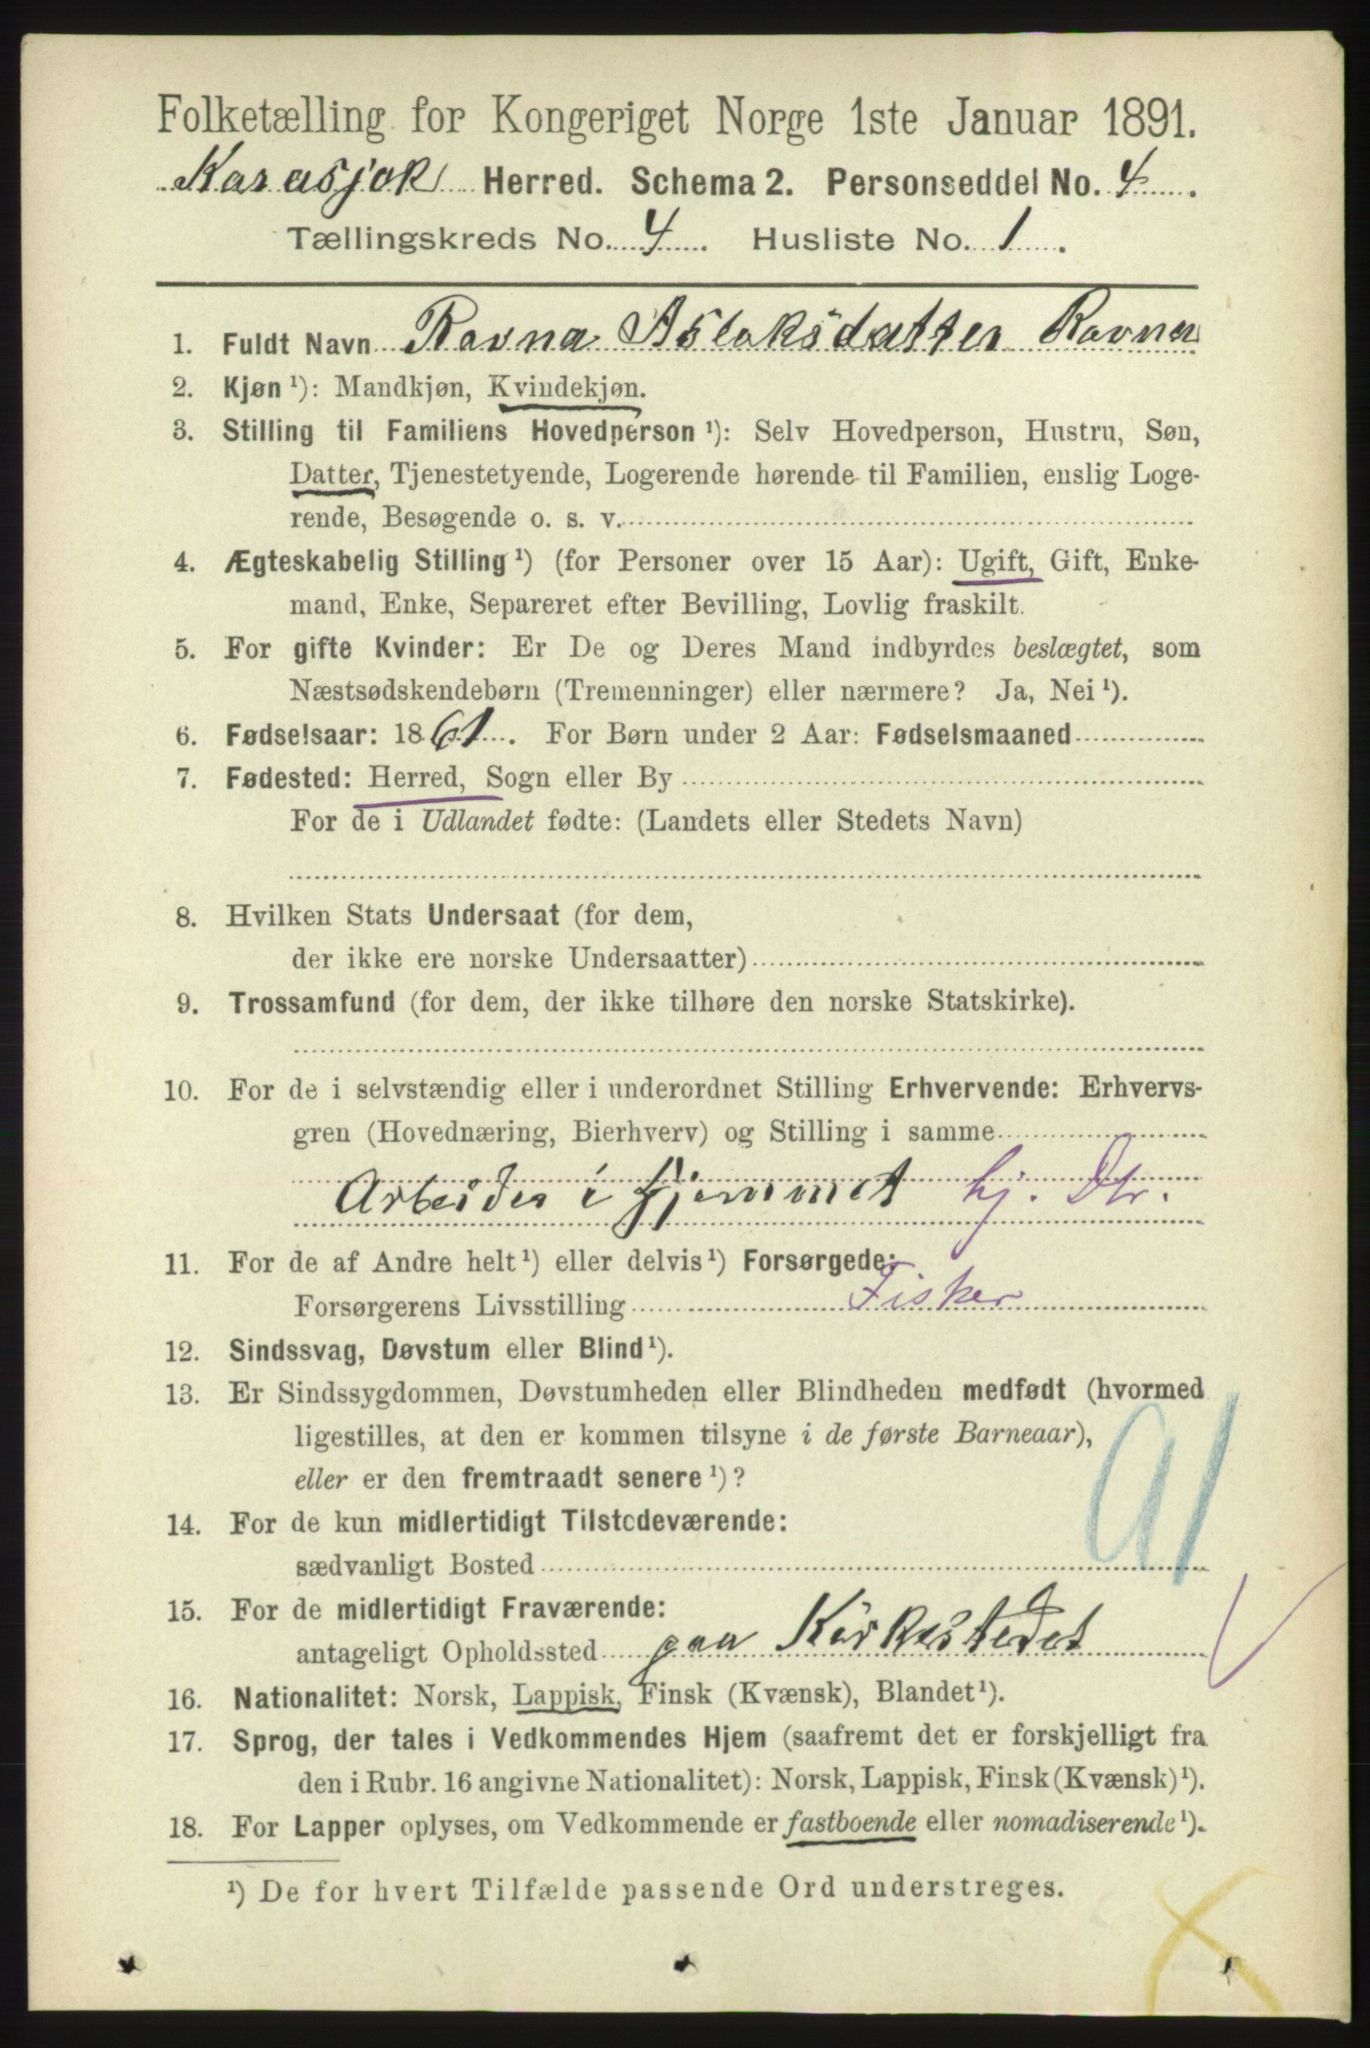 Folketælling for Kongeriget Norge 1ste Januar 1891.
Karasjok Herred. Schema 2. Personseddel No. 4.
Tællingskreds No. 4. Husliste No. 1.
1. Fuldt Navn Ravna Aslaksdatter Ravna
2. Kjøn ¹): Mandkjøn, Kvindekjøn.
3. Stilling til Familiens Hovedperson ¹): Selv Hovedperson, Hustru, Søn,
Datter, Tjenestetyende, Logerende hørende til Familien, enslig Loge-
rende, Besøgende o. s. v.
4. Ægteskabelig Stilling ¹) (for Personer over 15 Aar): Ugift, Gift, Enke-
mand, Enke, Separeret efter Bevilling, Lovlig fraskilt.
5. For gifte Kvinder: Er De og Deres Mand indbyrdes beslægtet, som
Næstsødskendebørn (Tremenninger) eller nærmere? Ja, Nei ¹).
6. Fødselsaar: 1861. For Børn under 2 Aar: Fødselsmaaned
7. Fødested: Herred, Sogn eller By
For de i Udlandet fødte: (Landets eller Stedets Navn)
8. Hvilken Stats Undersaat (for dem,
der ikke ere norske Undersaatter)
9. Trossamfund (for dem, der ikke tilhøre den norske Statskirke).
10. For de i selvstændig eller i underordnet Stilling Erhvervende: Erhvervs-
gren (Hovednæring, Bierhverv) og Stilling i samme
Arbeider i Hjemmet hj. Dtr.
11. For de af Andre helt ¹) eller delvis ¹) Forsørgede:
Forsørgerens Livsstilling Fisker
12. Sindssvag, Døvstum eller Blind ¹).
13. Er Sindssygdommen, Døvstumheden eller Blindheden medfødt (hvormed
ligestilles, at den er kommen tilsyne i de første Barneaar),
eller er den fremtraadt senere ¹)?
91
14. For de kun midlertidigt Tilstedeværende:
sædvanligt Bosted
15. For de midlertidigt Fraværende:
antageligt Opholdssted paa Kirkestedet
16. Nationalitet: Norsk, Lappisk, Finsk (Kvænsk), Blandet ¹).
17. Sprog, der tales i Vedkommendes Hjem (saafremt det er forskjelligt fra
den i Rubr. 16 angivne Nationalitet): Norsk, Lappisk, Finsk (Kvænsk) ¹).
18. For Lapper oplyses, om Vedkommende er fastboende eller nomadiserende ¹).
¹) De for hvert Tilfælde passende Ord understreges.